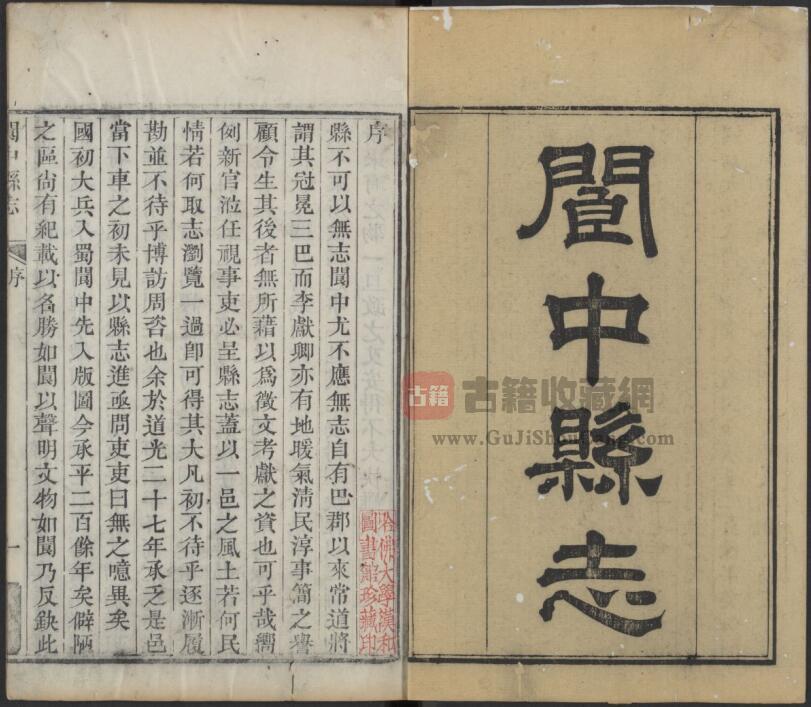 閬中縣志
序
縣不可以無志閬中尤不應無志自有巴郡以來常道將
謂其冠冕三巴而李獻卿亦有地暖氣清民淳事簡之譽
顧令生其後者無所藉以爲徵文考獻之資也可乎哉嚮
例新官涖任視事吏必呈縣志蓋以一邑之風土若何民
情若何取志瀏覽一過卽可得其大凡初不待乎逐漸履
勘並不待乎博訪周咨也余於道光二十七年承乏是邑
當下車之初未見以縣志進亟問吏吏曰無之噫異矣
國初大兵入蜀閬中先入版圖今承平二百餘年矣僻陋
之區尙有紀載以名勝如閬以聲明文物如閬乃反缺此
閬中縣志
序
一
哈佛大學漢和
圖書館珍藏印
古籍
古籍收藏網
www.GuJiShouCang.com